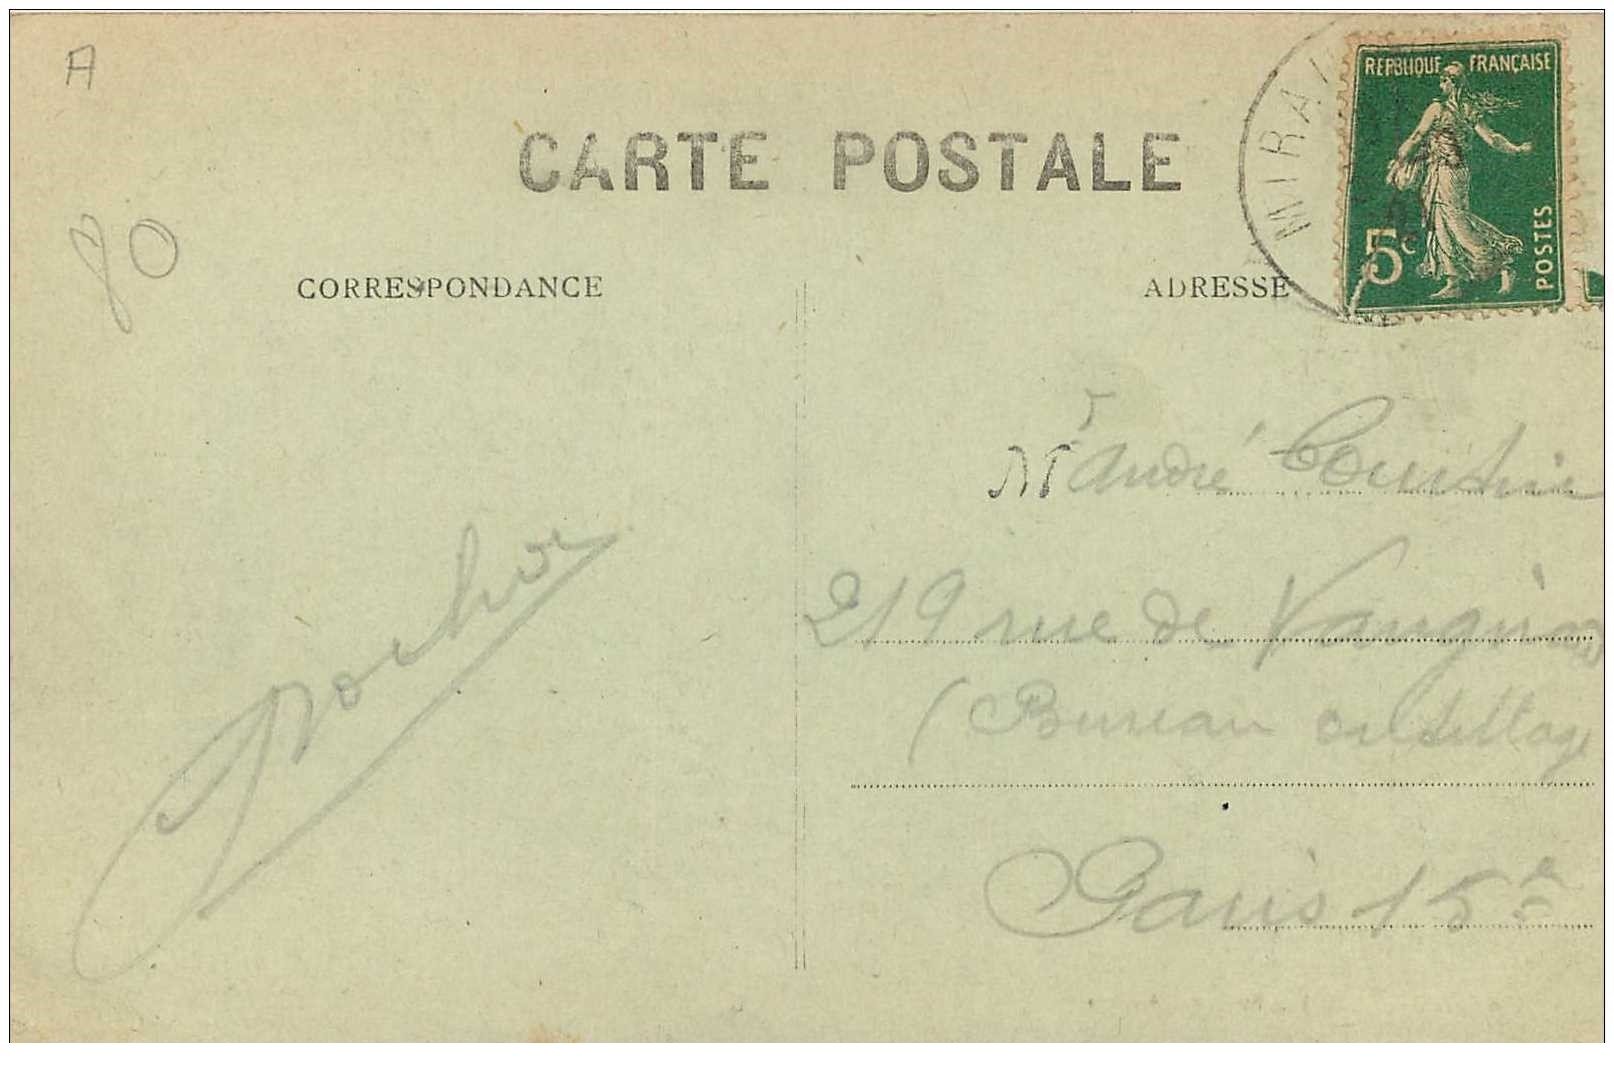 A
CARTE POSTALE
MIRA
REPUBLIQUE FRANÇAISE
5c
POSTES
80
CORRESPONDANCE
ADRESSE
Mr André
219 rue de Vaugirard
(Bureau
Paris 15e